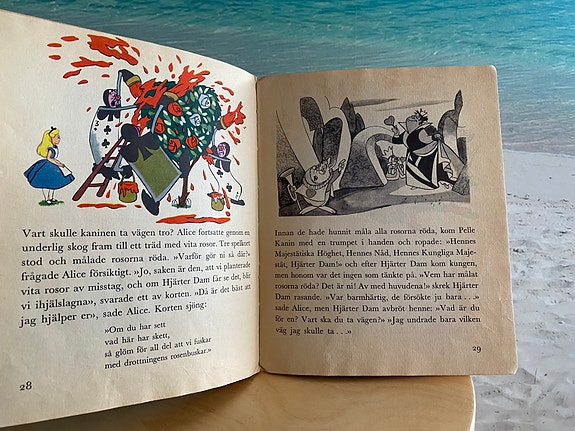 Vart skulle kaninen ta vägen tro? Alice fortsatte genom en
underlig skog fram till ett träd med vita rosor. Tre spelkort
stod och målade rosorna röda. »Varför gör ni så där?»
frågade Alice försiktigt. »Jo, saken är den, att vi planterade
vita rosor av misstag, och om Hjärter Dam får se det, blir
vi ihjälslagna», svarade ett av korten. »Då är det bäst att
jag hjälper er», sade Alice. Korten sjöng:
»Om du har sett
vad här har skett,
så glöm för all del att vi fuskar
med drottningens rosenbuskar.»
28
Innan de hade hunnit måla alla rosorna röda, kom Pelle
Kanin med en trumpet i handen och ropade: »Hennes
Majestätiska Höghet, Hennes Nåd, Hennes Kungliga Maje-
stät, Hjärter Dam!» och efter Hjärter Dam kom kungen,
men honom var det ingen som tänkte på. »Vem har målat
rosorna röda? Det är ni! Av med huvudena!» skrek Hjärter
Dam rasande. »Var barmhärtig, de försökte ju bara . . .»
sade Alice, men Hjärter Dam avbröt henne: »Vad är du
för en? Vart ska du ta vägen?» »Jag undrade bara vilken
väg jag skulle ta . . .»
29